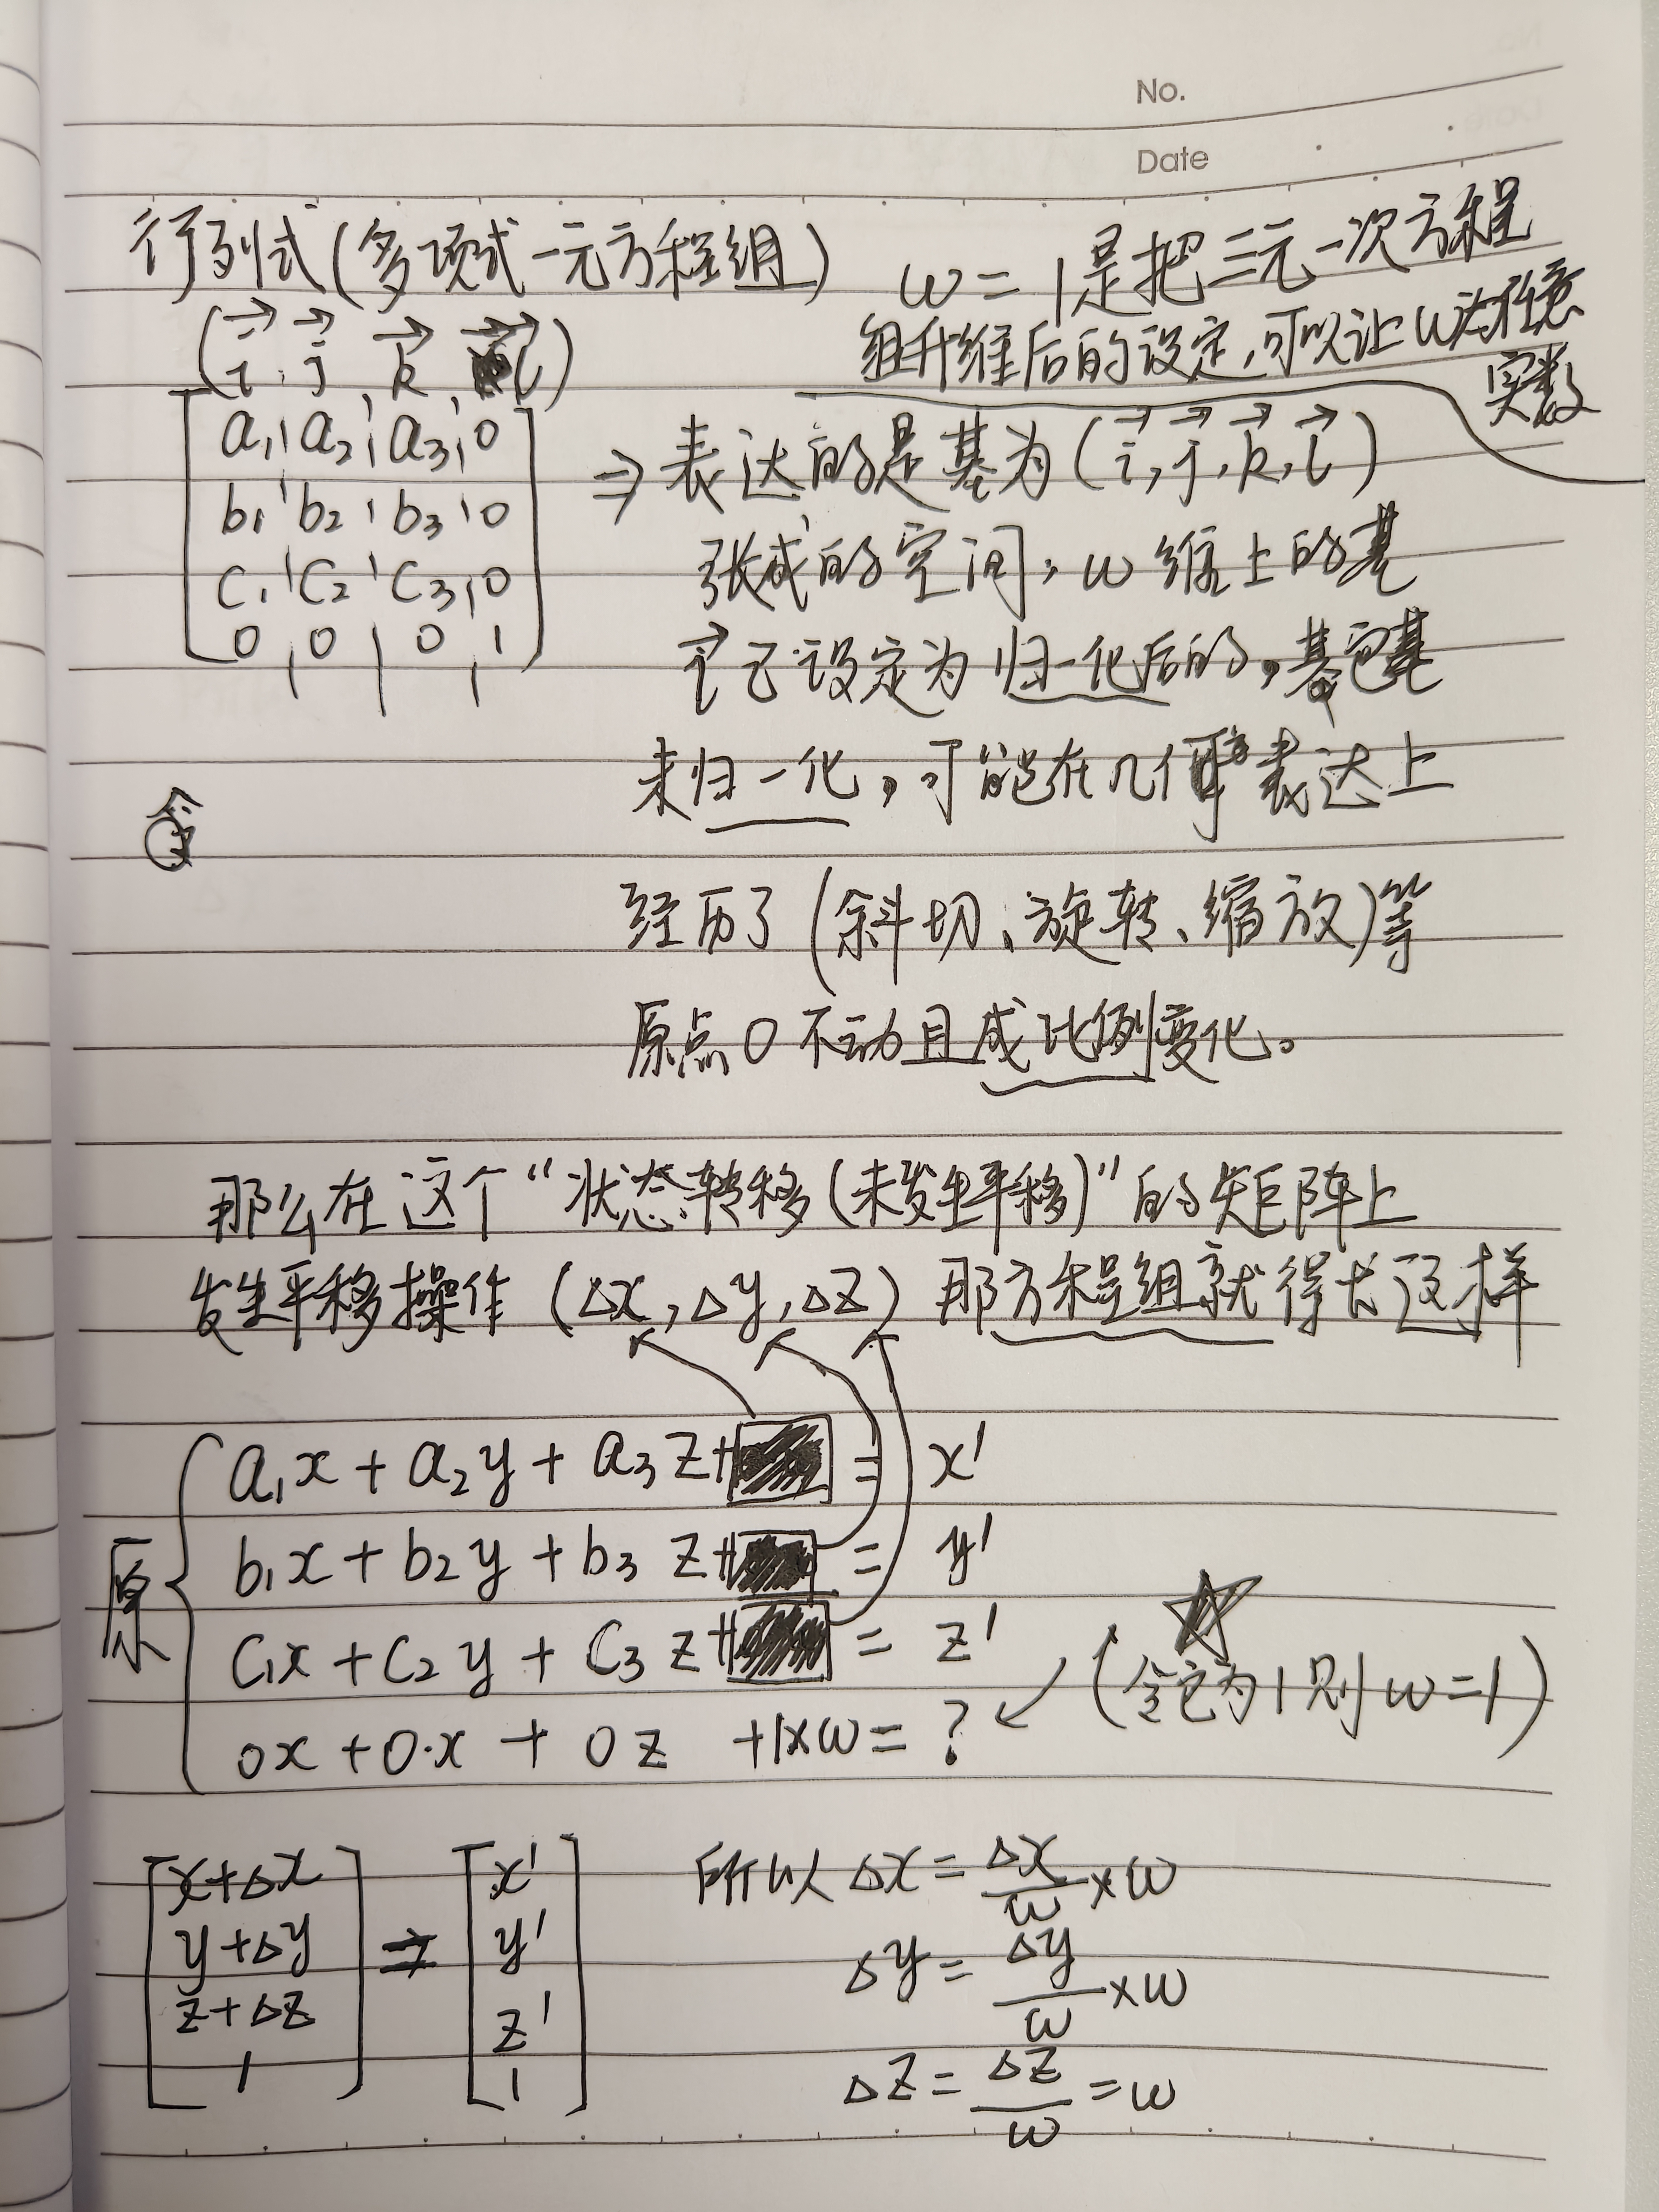 No.
Date
行列式(多项式一元方程组)
w = 1是把三元一次方程
组升维后的设定,可以让w为任意
实数
(i⃗, j⃗, k⃗, l⃗)
a₁ a₂ a₃ 0
b₁ b₂ b₃ 0
c₁ c₂ c₃ 0
0 0 0 1
⇒ 表达的是基为(i⃗, j⃗, k⃗, l⃗)
张成的空间, w维上的基
l⃗已设定为归一化后的,其它基
未归一化,可能在几何表达上
经历了(斜切、旋转、缩放)等
原点0不动且成比例变化。
那么在这个“状态转移(未发生平移)”的矩阵上
发生平移操作(Δx, Δy, Δz) 那方程组就得长这样
原
a₁x + a₂y + a₃z+ = x'
b₁x + b₂y + b₃z+ = y'
c₁x + c₂y + c₃z+ = z'
0x + 0·x + 0z +1×w = ? ↙ (令它为1则w=1)
x+Δx
y+Δy
z+Δz
1
⇒
x'
y'
z'
1
所以 Δx = Δx/w ×w
Δy = Δy/w ×w
Δz = Δz/w =w